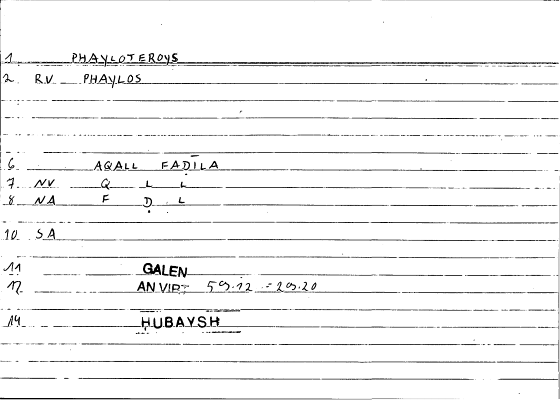 1 PHAYLOTEROYS
2 RV PHAYLOS
6 AQALL FADĪLA
7 NV Q L L
8 NA F Ḍ L
10 SA
11 GALEN
12 AN VIRT 59.12 = 29.20
14 ḤUBAYSH